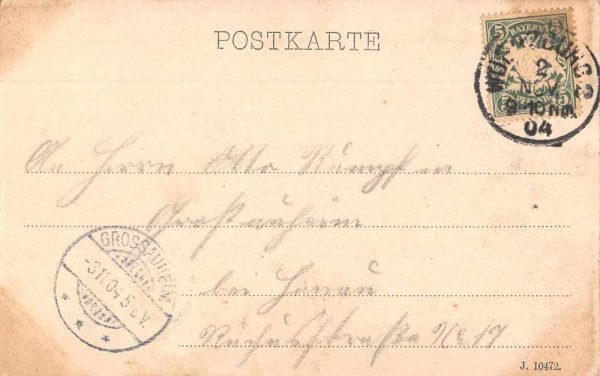 POSTKARTE
5 BAYERN 5
WÜRZBURG 2
2
NOV.
9-10 Nm.
04
An Herrn Otto Rumpf in
Großauheim
bei Hanau
Nº 17
GROSSAUHEIM
-3.11.04.
V.
J. 10472.